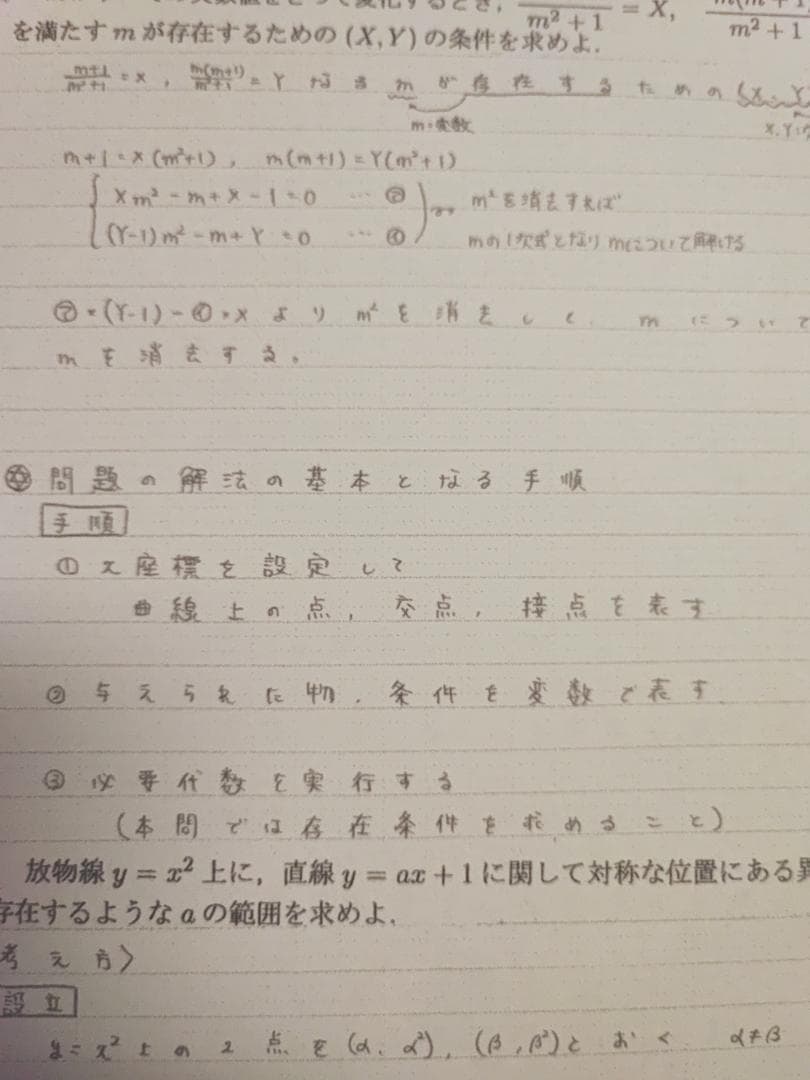 m²+1 = X, m²+1
を満たす m が存在するための (X, Y) の条件を求めよ.
m+1/m²+1 = X , m(m+1)/m²+1 = Y なる m が存在するための (X, Y
m・変数 X, Y:
m+1=X(m²+1) , m(m+1)=Y(m²+1)
Xm²-m+X-1=0 … ㋐ m²を消去すれば
(Y-1)m²-m+Y=0 … ㋑ mの1次式となりmについて解ける
㋐×(Y-1)-㋑×X より m²を消去して. m について
mを消去する。
問題の解法の基本となる手順
手順
① 座標を設定して
曲線上の点, 交点, 接点を表す
② 与えられた物, 条件を変数で表す
③ 必要代数を実行する
(本問では存在条件を求めること)
放物線 y = x² 上に, 直線 y = ax + 1 に関して対称な位置にある異
存在するような a の範囲を求めよ.
考え方〉
設立
y=x²上の2点を(α, α²), (β, β²)とおく α≠β